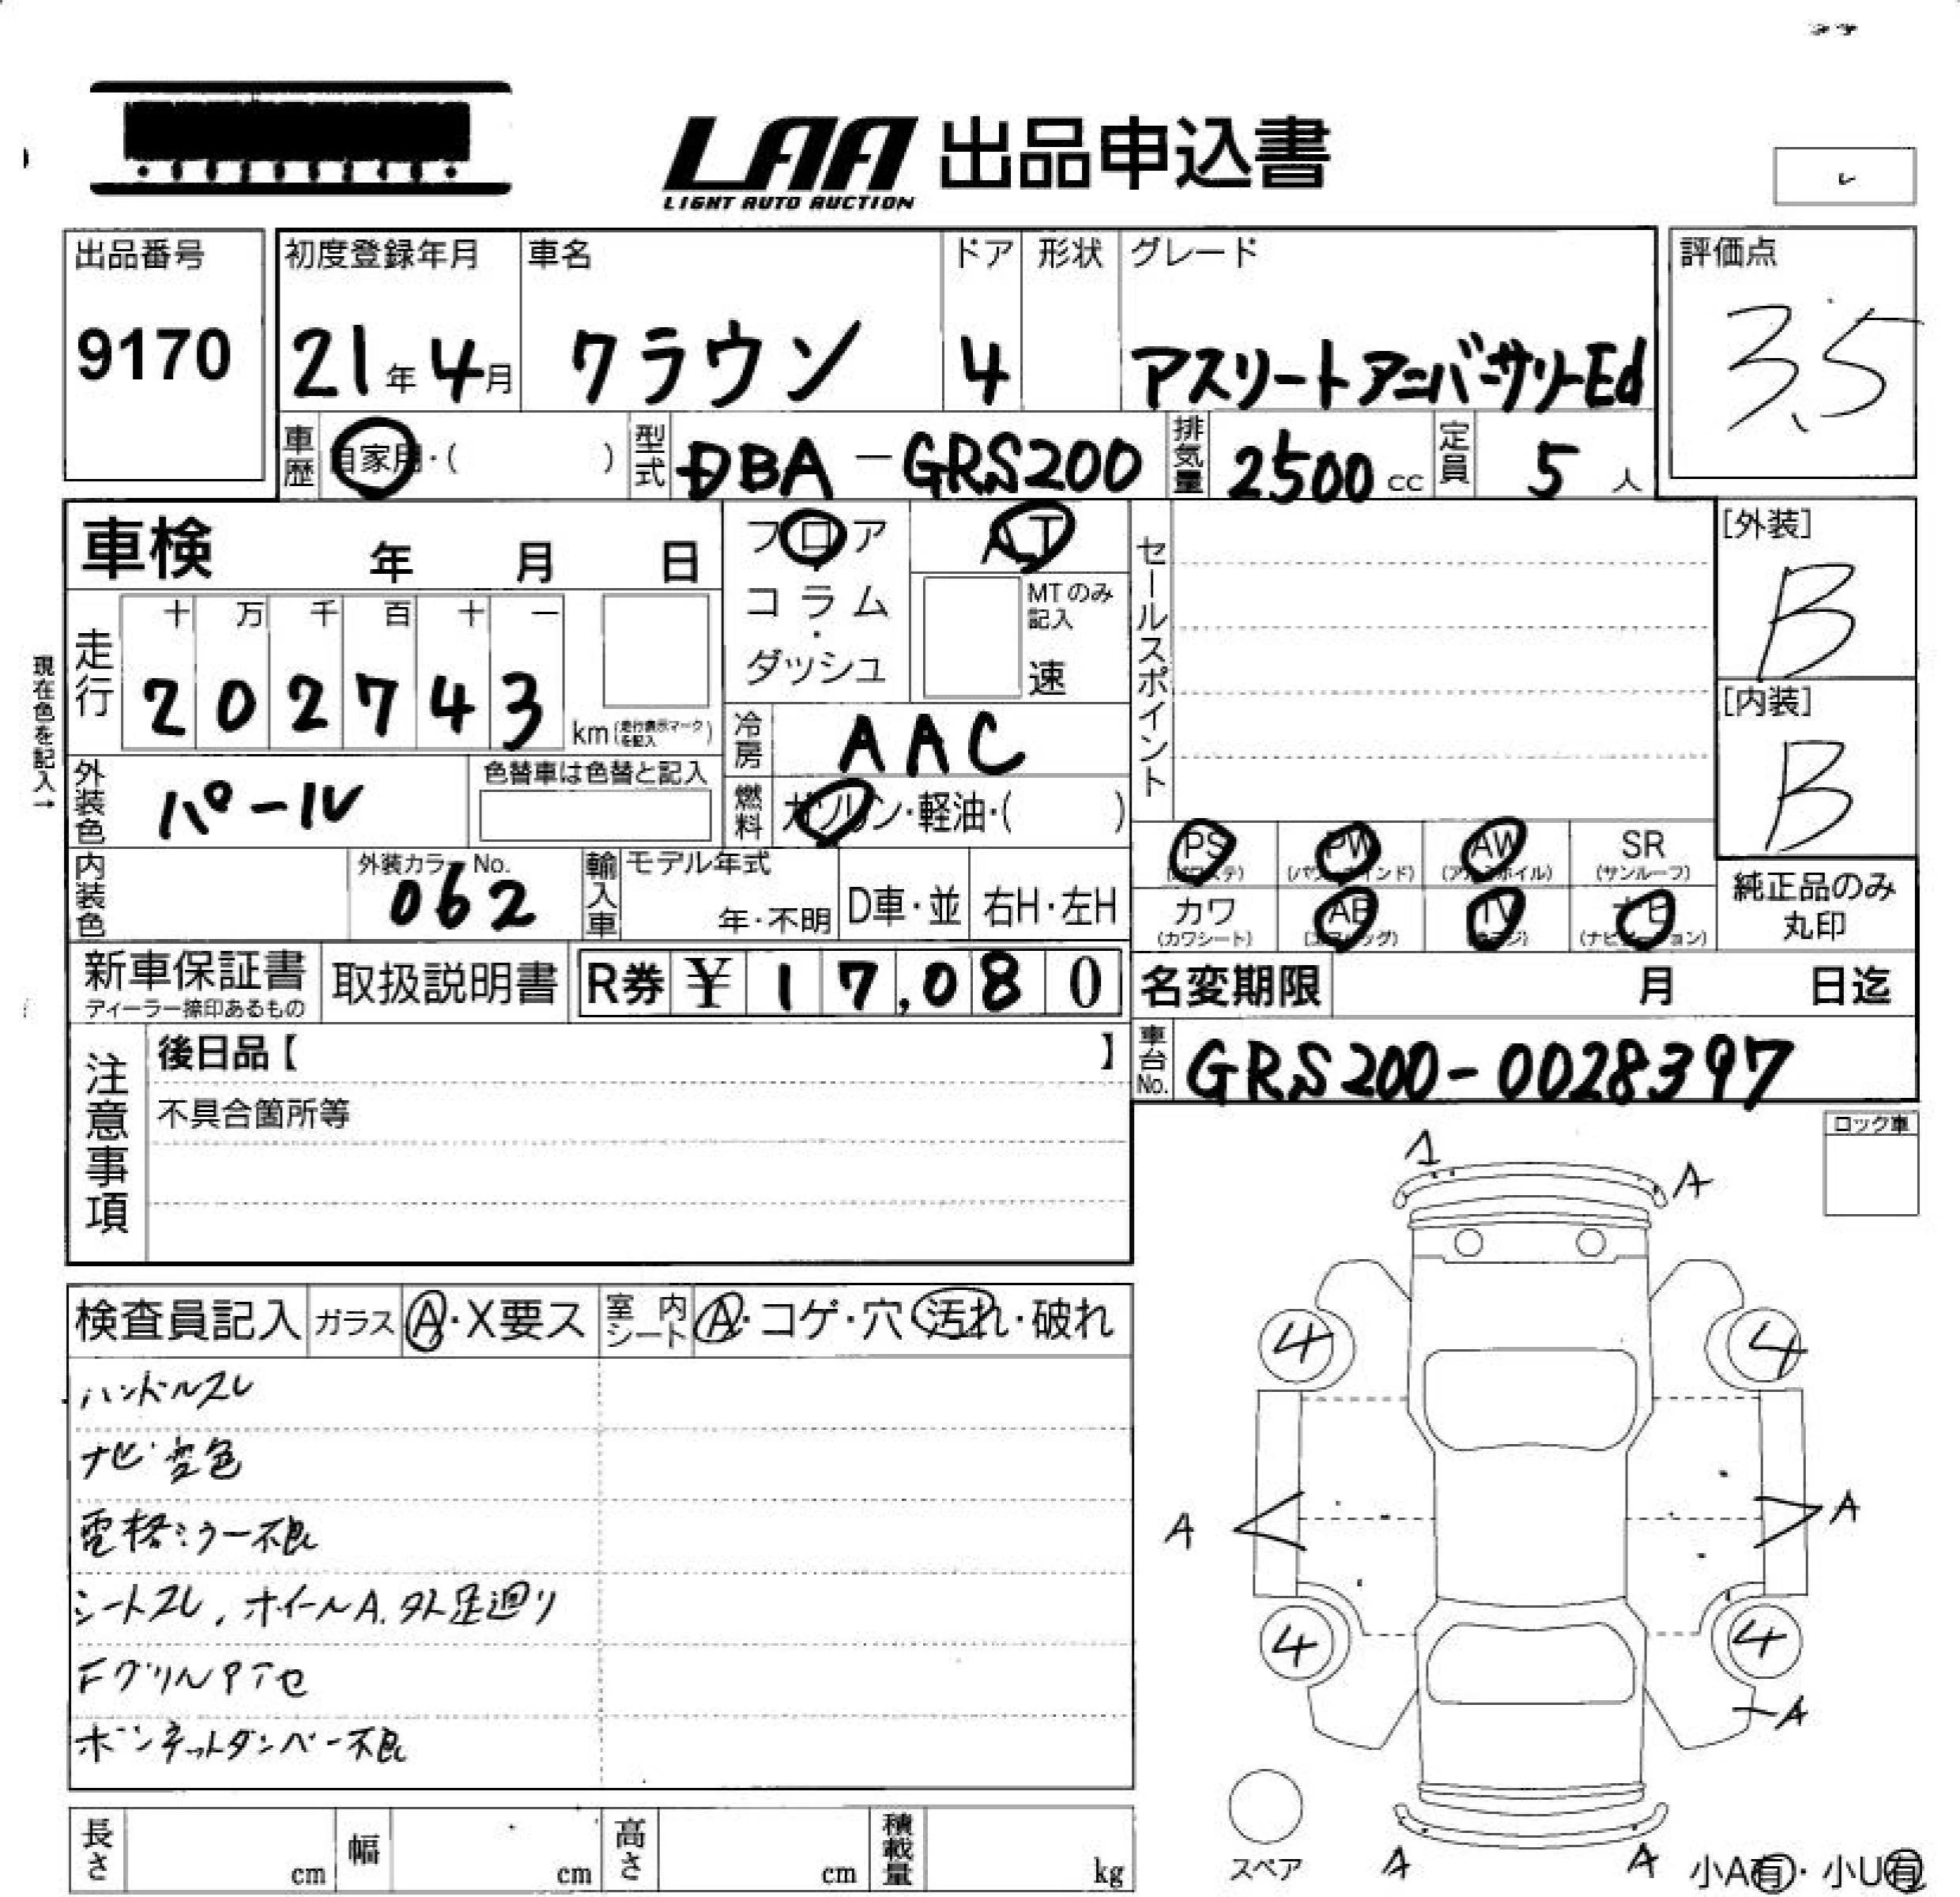 LAA 出品申込書
LIGHT AUTO AUCTION
出品番号
9170
初度登録年月 車名 ドア 形状 グレード
21年4月 クラウン 4 アスリートアニバーサリーEd
評価点
3.5
車歴 自家用・( ) 型式 DBA-GRS200 排気量 2500cc 定員 5人
車検 年 月 日
フロア AT
コラム・
ダッシュ
MTのみ記入
速
セールスポイント
[外装]
B
[内装]
B
現在色を記入→
走行 十 万 千 百 十 一
2 0 2 7 4 3 km(走行表示マークを記入)
冷房 AAC
外装色 パール 色替車は色替と記入
燃料 ガソリン・軽油・( )
PS PW AW SR
(パワステ) (パワーウインド) (アルミホイル) (サンルーフ)
カワ AB TV ナビ
(カワシート) (エアバッグ) (ナビゲーション)
純正品のみ
丸印
内装色 外装カラーNo. 062
輸入車 モデル年式 年・不明 D車・並 右H・左H
新車保証書 取扱説明書 R券 ¥ 17,080
ディーラー捺印あるもの
名変期限 月 日迄
車台No. GRS200-0028397
注意事項
後日品【 】
不具合箇所等
ロック車
1 A
検査員記入 ガラス A・X要ス 室内シート A・コゲ・穴・汚れ・破れ
ハンドルスレ
ナビ変色
電格ミラー不良
シートスレ,ホイールA.外足廻り
FグリルPアセ
ボンネットダンパー不良
4 4
A A
4 4
A
スペア A A 小A有・小U有
長さ cm 幅 cm 高さ cm 積載量 kg